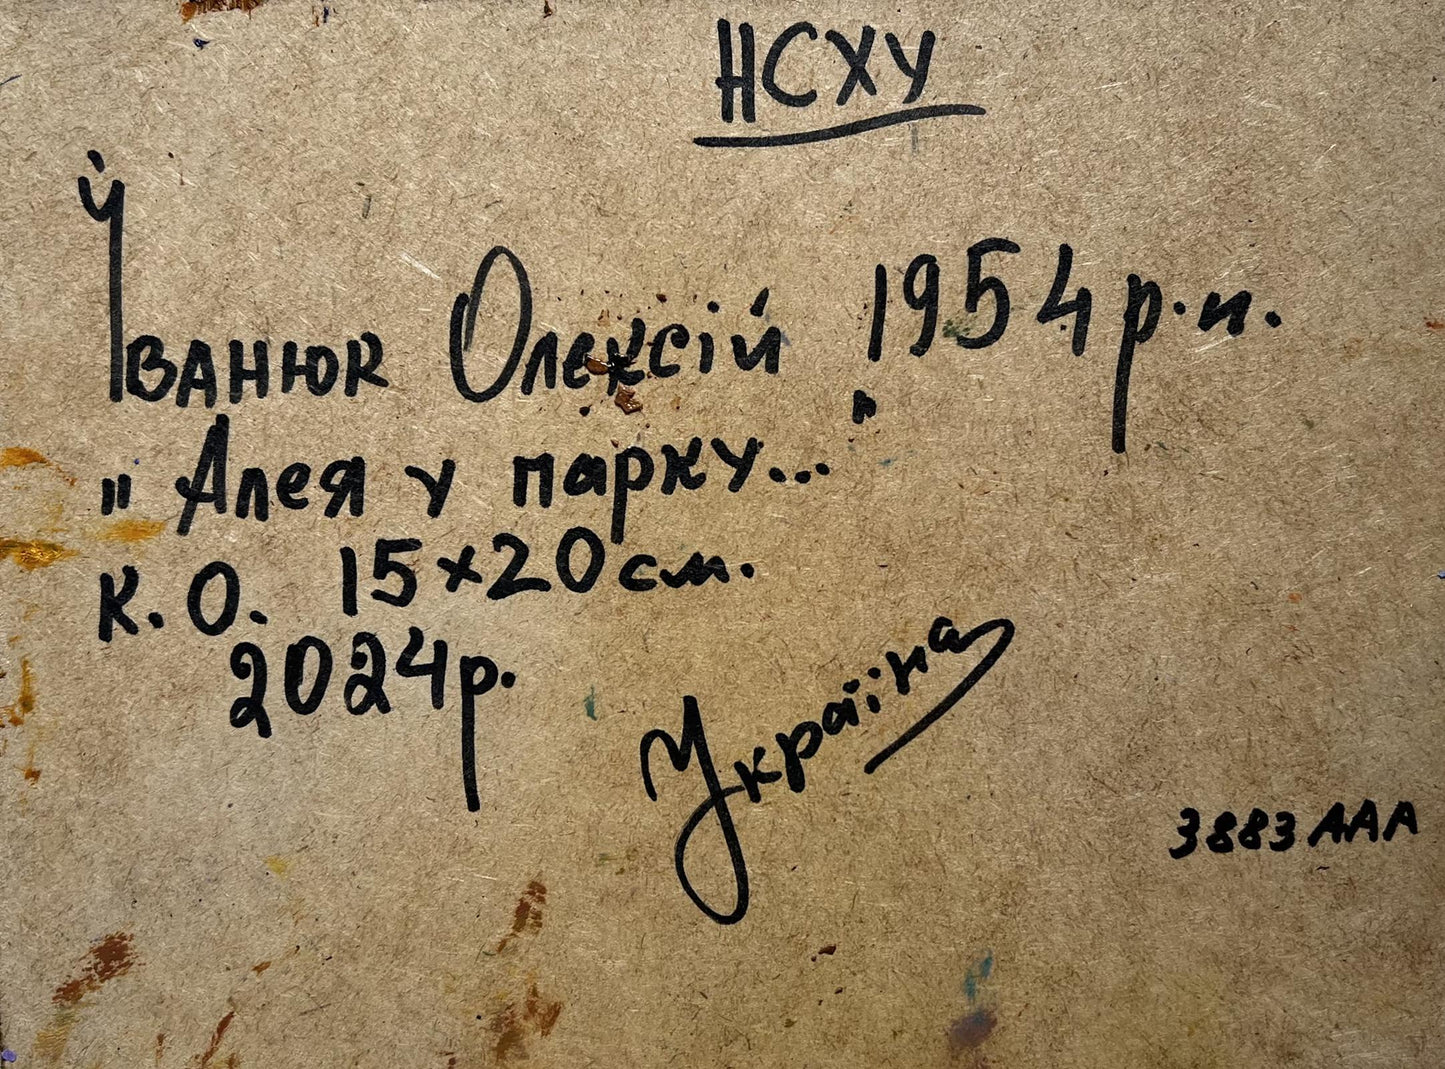 НСХУ
Іванюк Олексій 1954 р.н.
"Алея у парку..."
К.О. 15×20 см.
2024р.
Україна
3883 ААА